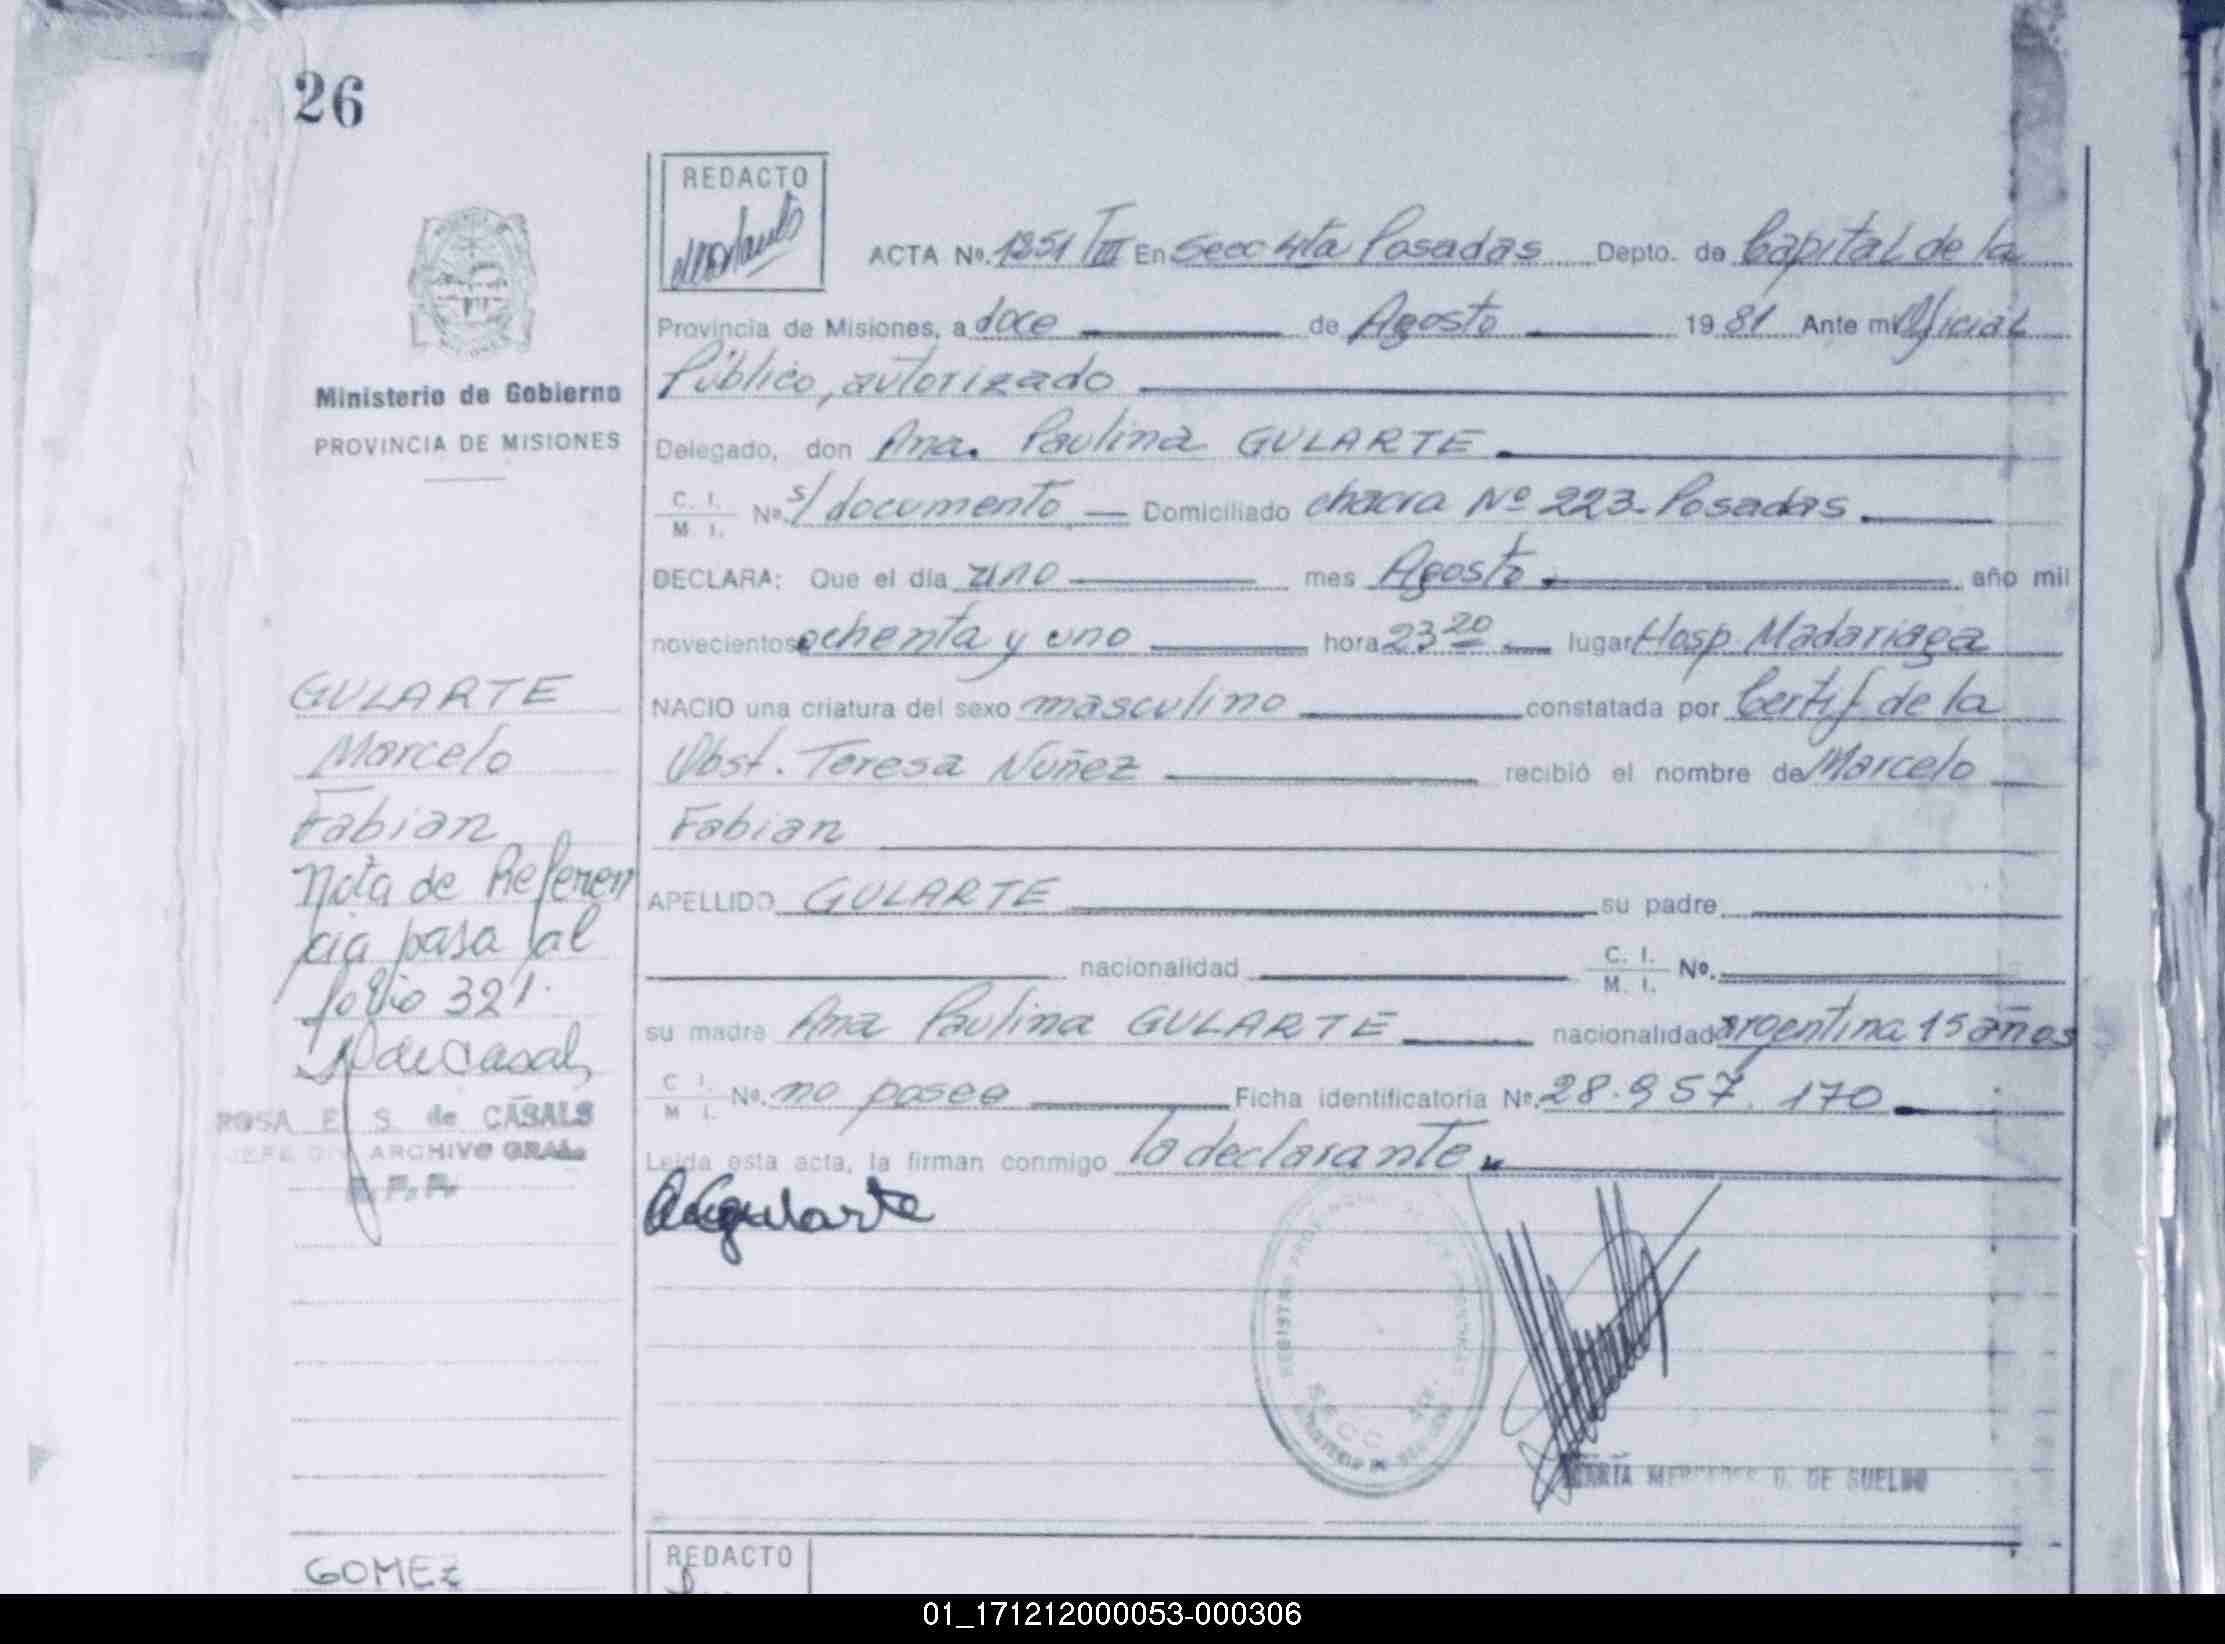 26
REDACTO
ACTA Nº. 1351 TIII En Secc 4ta Posadas Depto. de Capital de la
Provincia de Misiones, a doce de Agosto 1981 Ante mi Oficial
Público, autorizado
Ministerio de Gobierno
PROVINCIA DE MISIONES
Delegado, don Ana. Paulina GULARTE
C. I. M. I. Nº. s/ documento — Domiciliado chacra Nº 223- Posadas.
DECLARA: Que el día uno mes Agosto año mil
novecientos ochenta y uno hora 23 20 lugar Hosp. Madariaga
NACIO una criatura del sexo masculino constatada por Certif de la
Obst. Teresa Nuñez recibió el nombre de Marcelo
Fabian
APELLIDO GULARTE su padre
nacionalidad C. I. M. I. Nº.
su madre Ana Paulina GULARTE nacionalidad argentina 15 años
C. I. M. I. Nº. no posee Ficha identificatoria Nº. 28.957.170
Leída esta acta, la firman conmigo la declarante
GULARTE
Marcelo
Fabian
Nota de Referen
cia pasa al
folio 321.
de Casals
ROSA E. S. de CASALS
JEFE DIV. ARCHIVO GRAL.
R. P. P.
Gularte
SECC
MARÍA MERCEDES G. DE SUELDO
GOMEZ
REDACTO
01_171212000053-000306